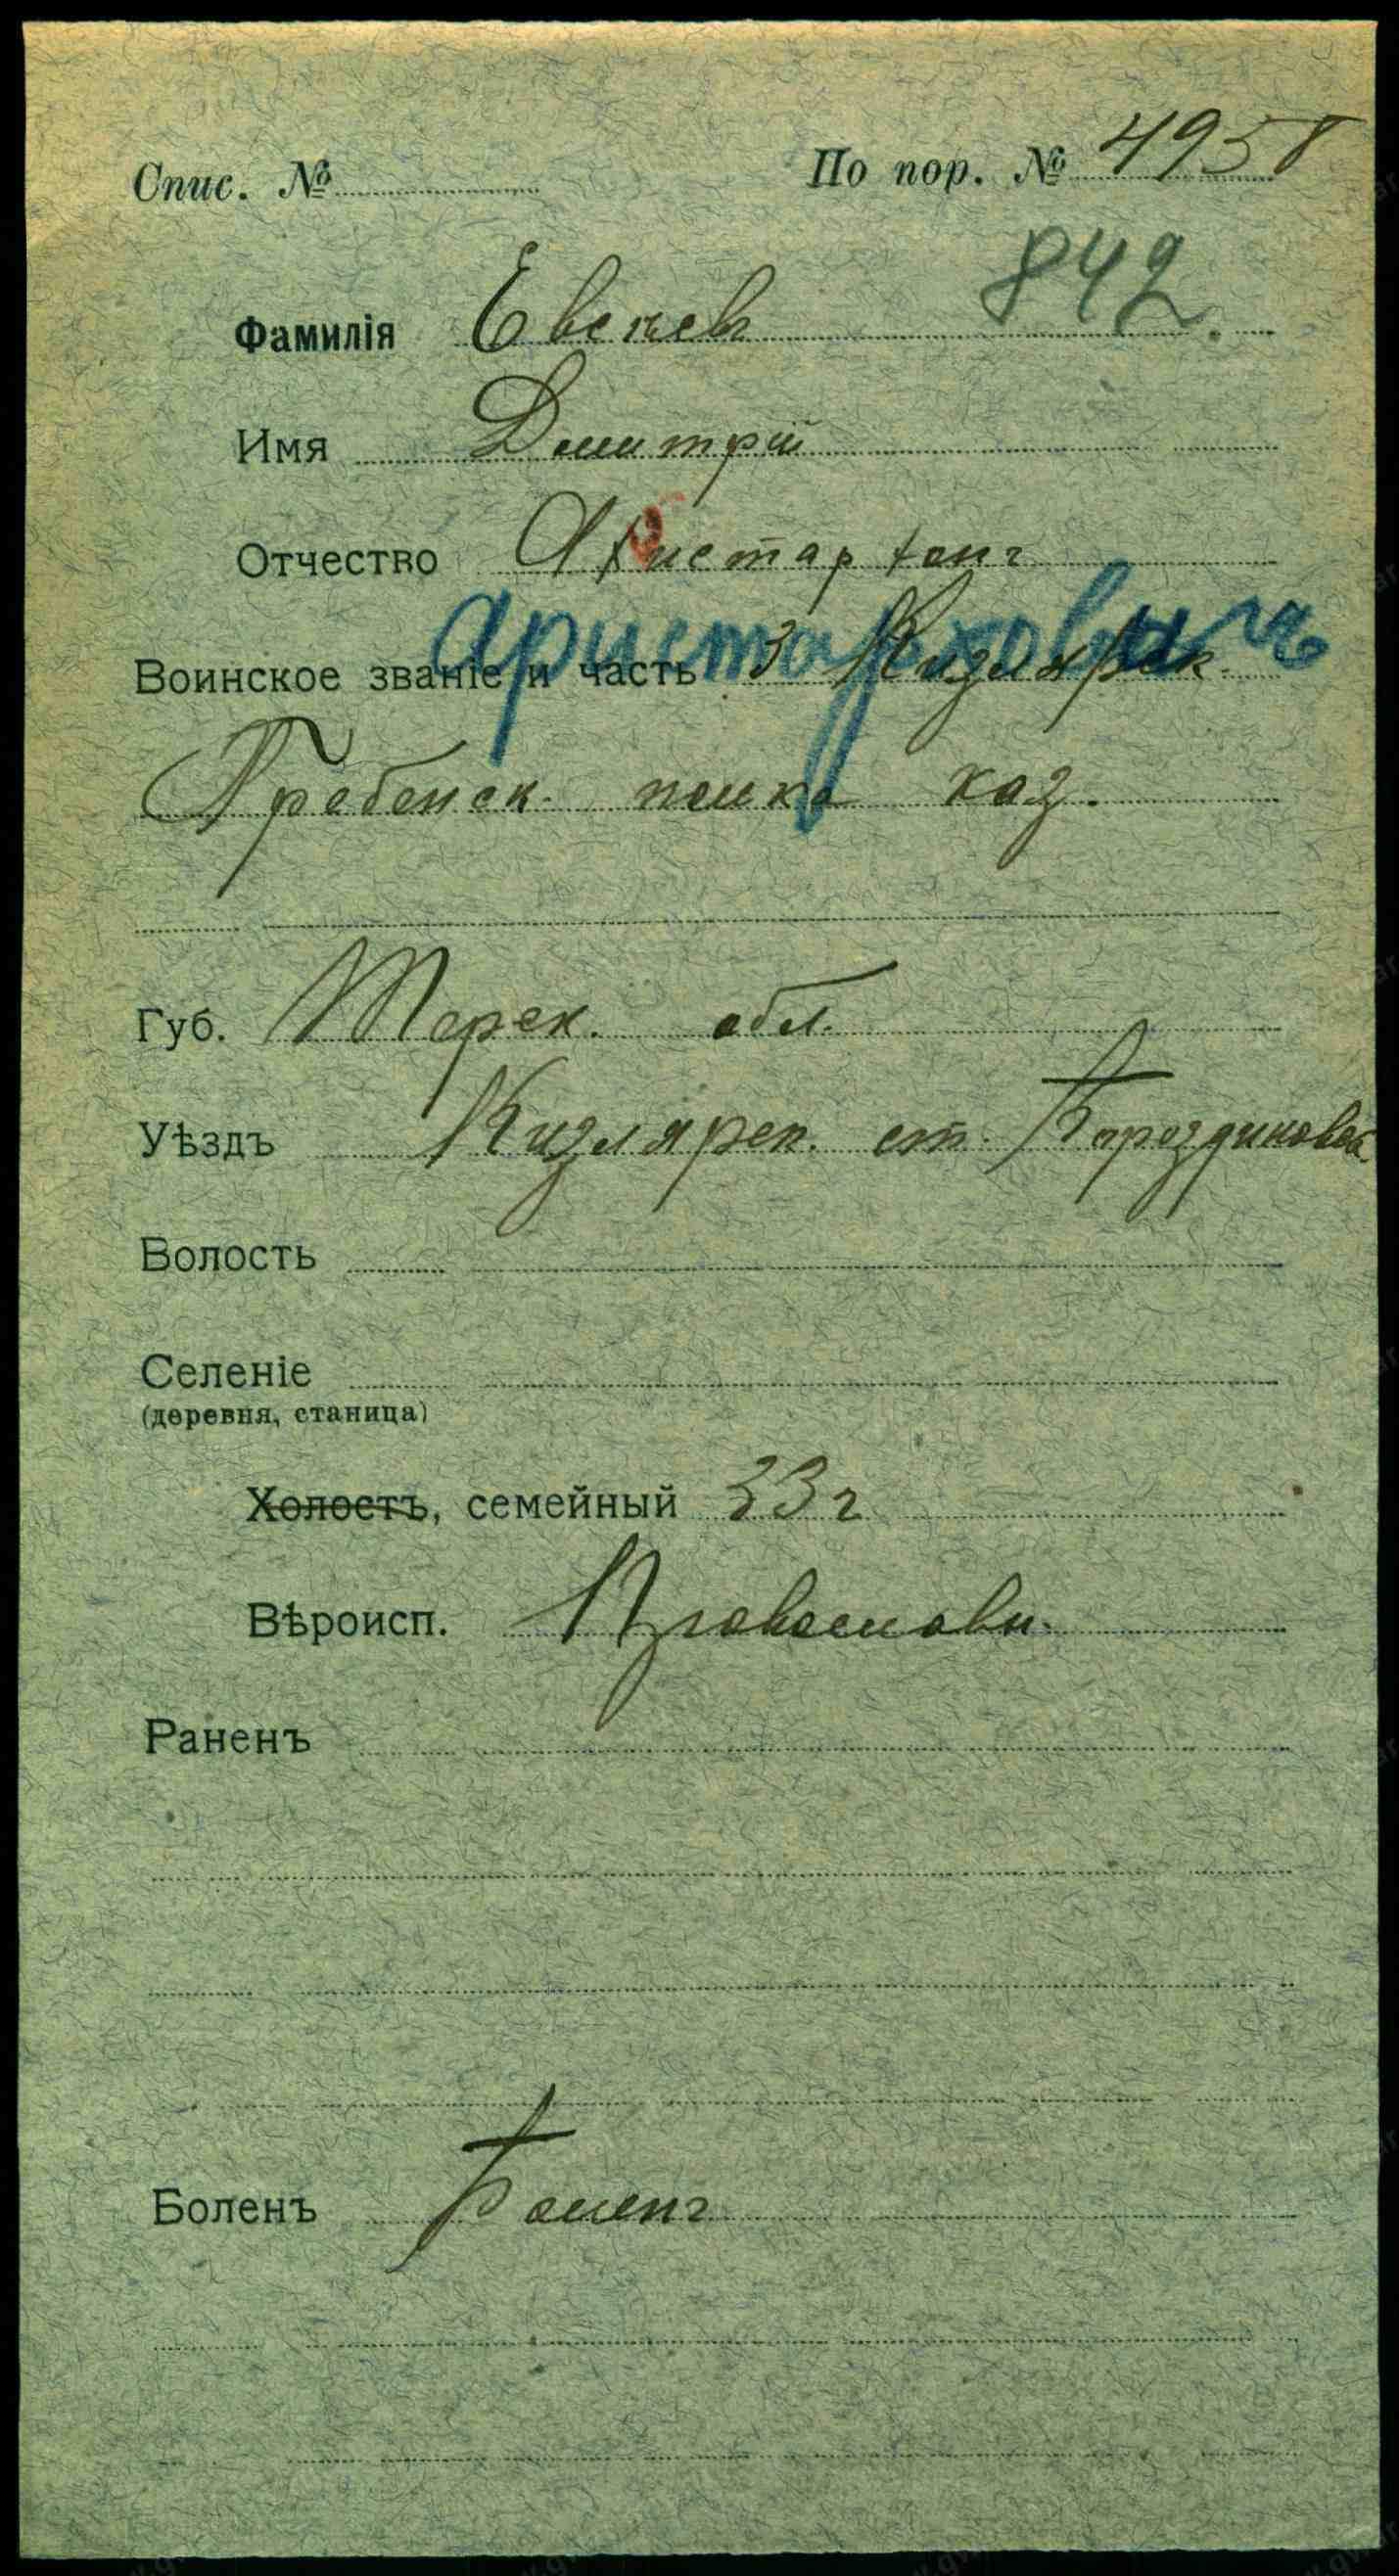 Спис. № По пор. № 4958
842.
Фамилія Евсѣевъ
Имя Дмитрій
Отчество Ахистархонъ
Аристарховичъ
Воинское званіе и часть 3 Кизлярск.
Гребенск. полка каз.
Губ. Терск. обл.
Уѣздъ Кизлярск. ст. Бороздиновск.
Волость
Селеніе
(деревня, станица)
Холостъ, семейный 33 г
Вѣроисп. Православн.
Раненъ
Боленъ Боленъ